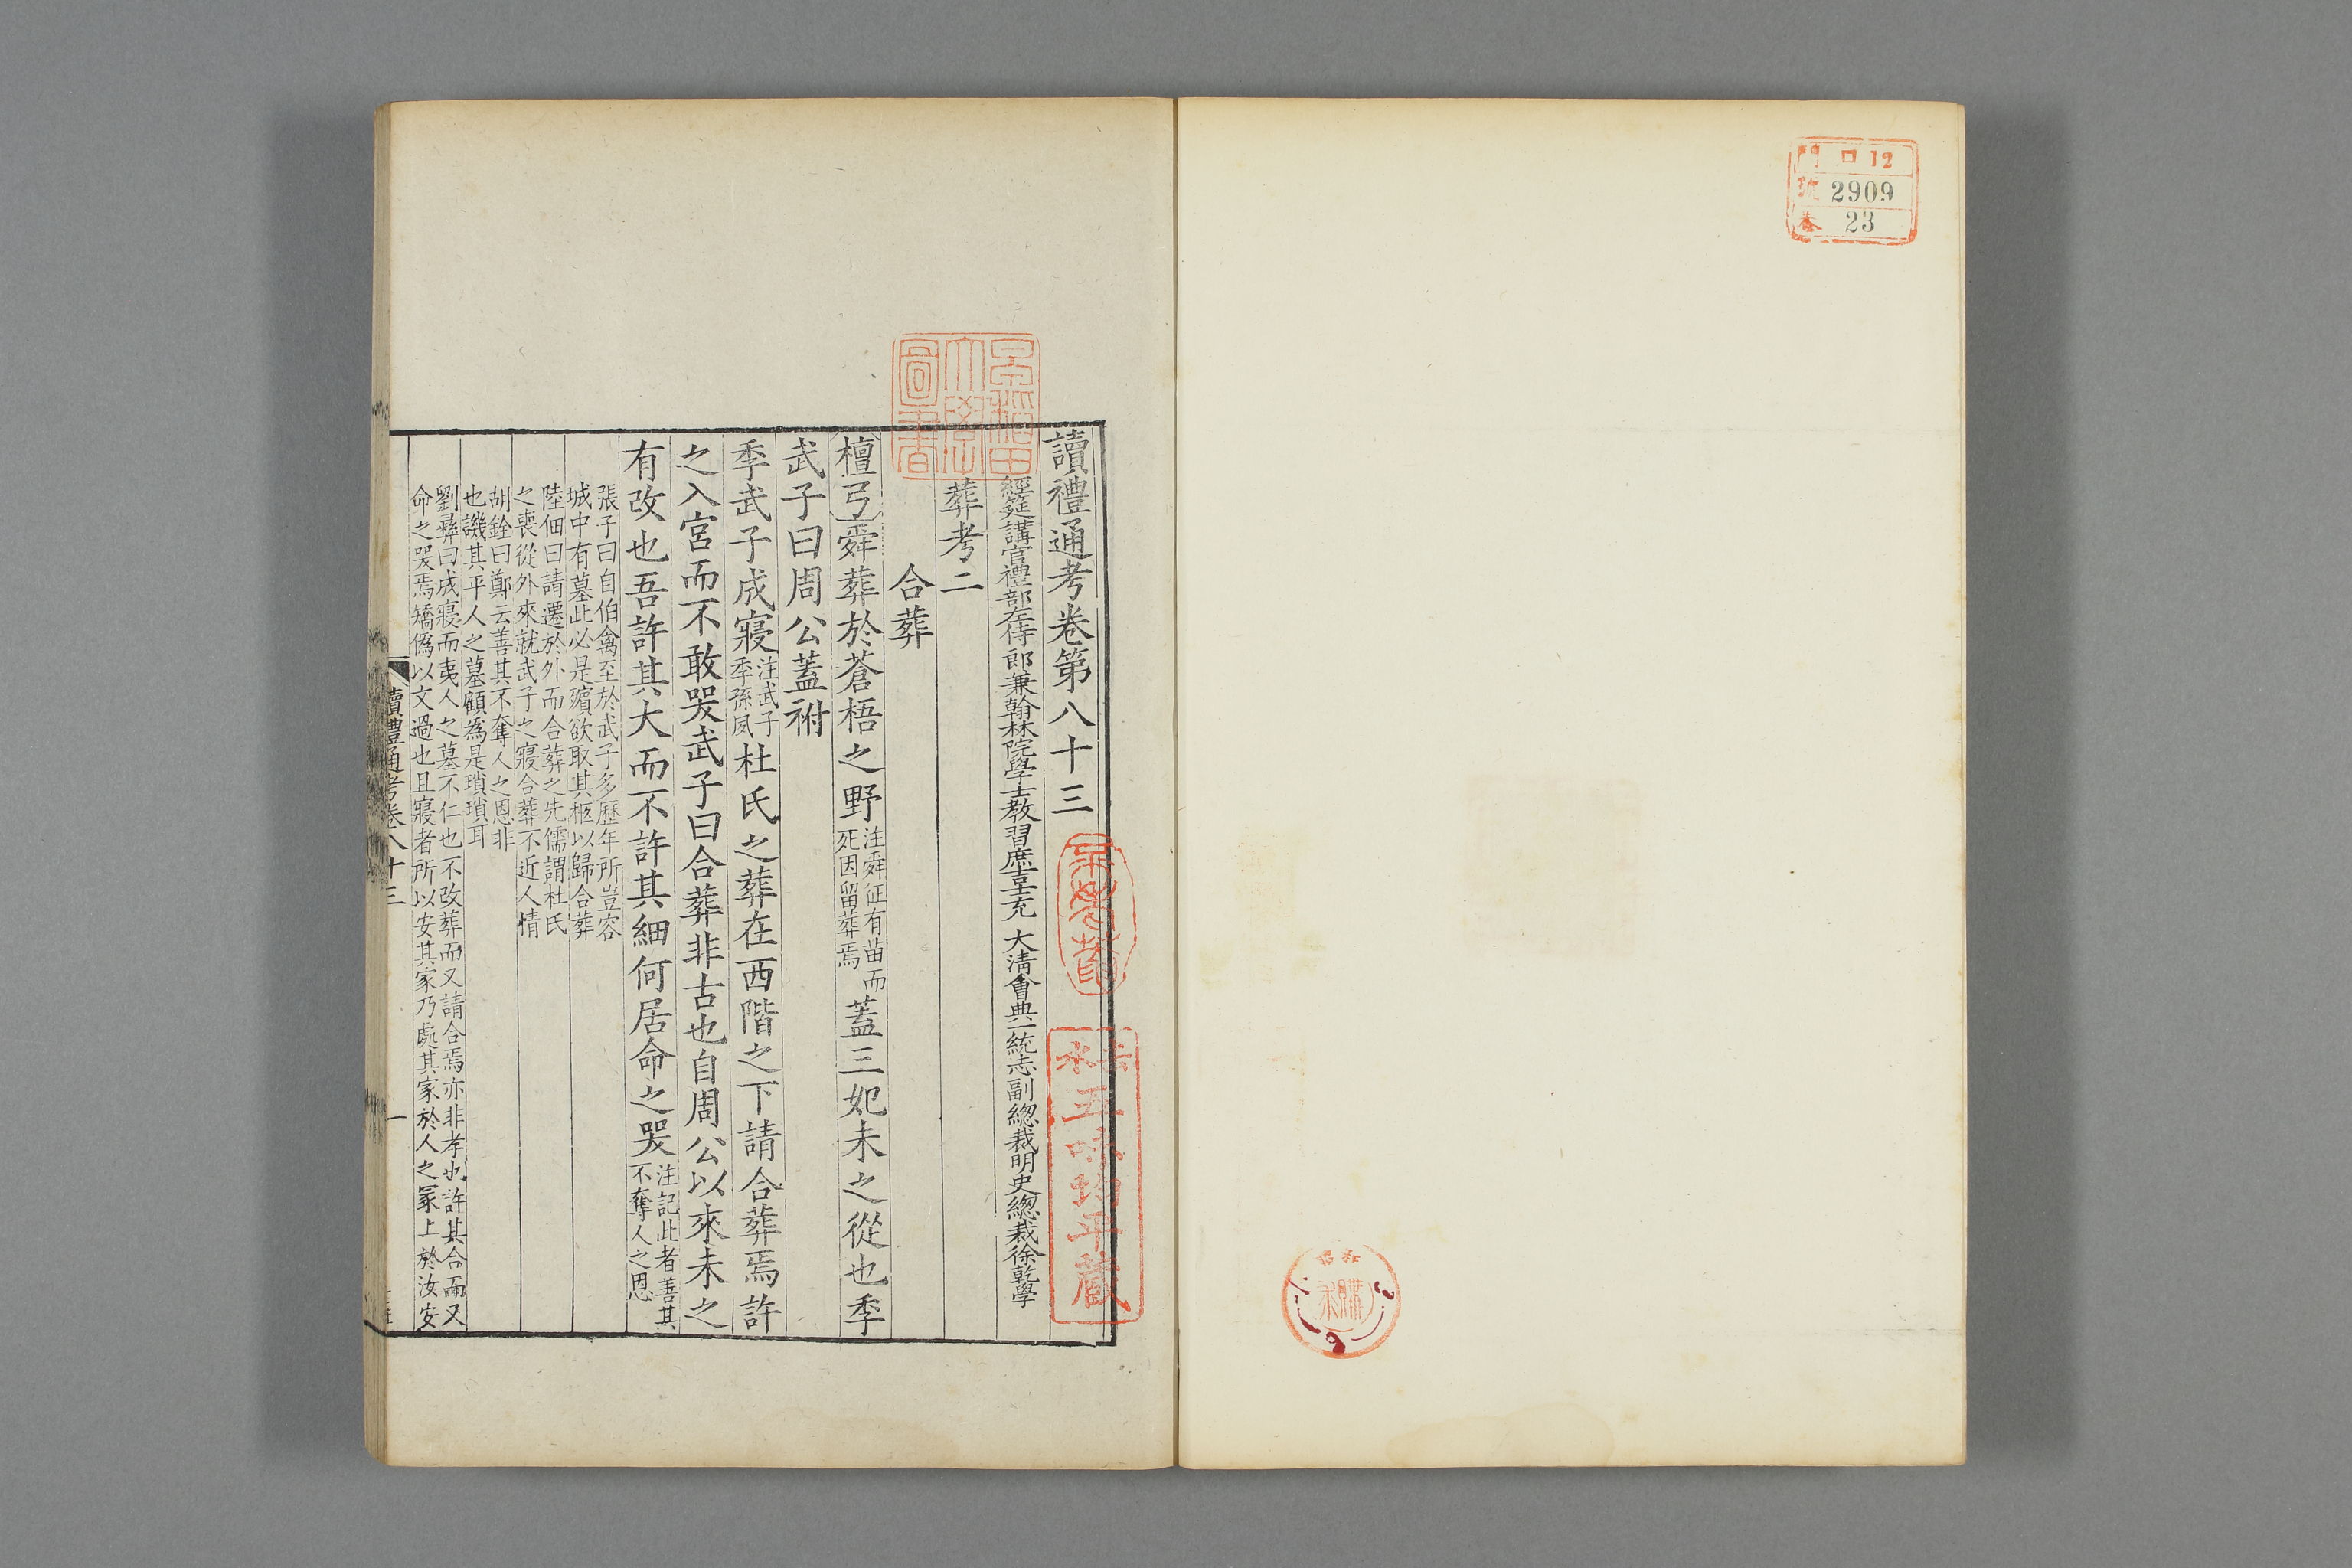 門 口 12
號 2909
卷 23
讀禮通考卷第八十三
經筵講官禮部左侍郎兼翰林院學士教習庶吉士充 大清會典一統志副總裁明史總裁徐乾學
葬考二
合葬
檀弓舜葬於蒼梧之野注舜征有苗而死因留葬焉蓋三妃未之從也季
武子曰周公蓋祔
季武子成寢注武子季孫夙杜氏之葬在西階之下請合葬焉許
之入宮而不敢哭武子曰合葬非古也自周公以來未之
有改也吾許其大而不許其細何居命之哭注記此者善其不奪人之恩
張子曰自伯禽至於武子多歷年所豈容
城中有墓此必是殯欲取其柩以歸合葬
陸佃曰請遷於外而合葬之先儒謂杜氏
之喪從外來就武子之寢合葬不近人情
胡銓曰鄭云善其不奪人之恩非
也譏其平人之墓顧為是瑣瑣耳
劉彝曰成寢而夷人之墓不仁也不改葬而又請合焉亦非孝也許其合而又
命之哭焉矯僞以文過也且寢者所以安其家乃處其家於人之冢上於汝安
讀禮通考卷八十三
一
早稻田大學圖書